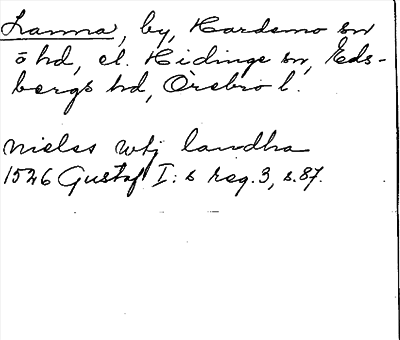 Lanna, by, Hardemo sn
ö hd, el. Hidinge sn, Eds-
bergs hd, Örebro l.
nielss wtj landha
1526 Gustaf I:s reg. 3, s. 87.